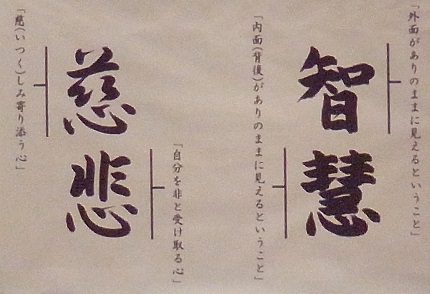 「外面がありのままに見えるということ」
智慧
「内面(背後)がありのままに見えるということ」
「自分を非と受け取る心」
慈悲
「慈(いつく)しみ寄り添う心」